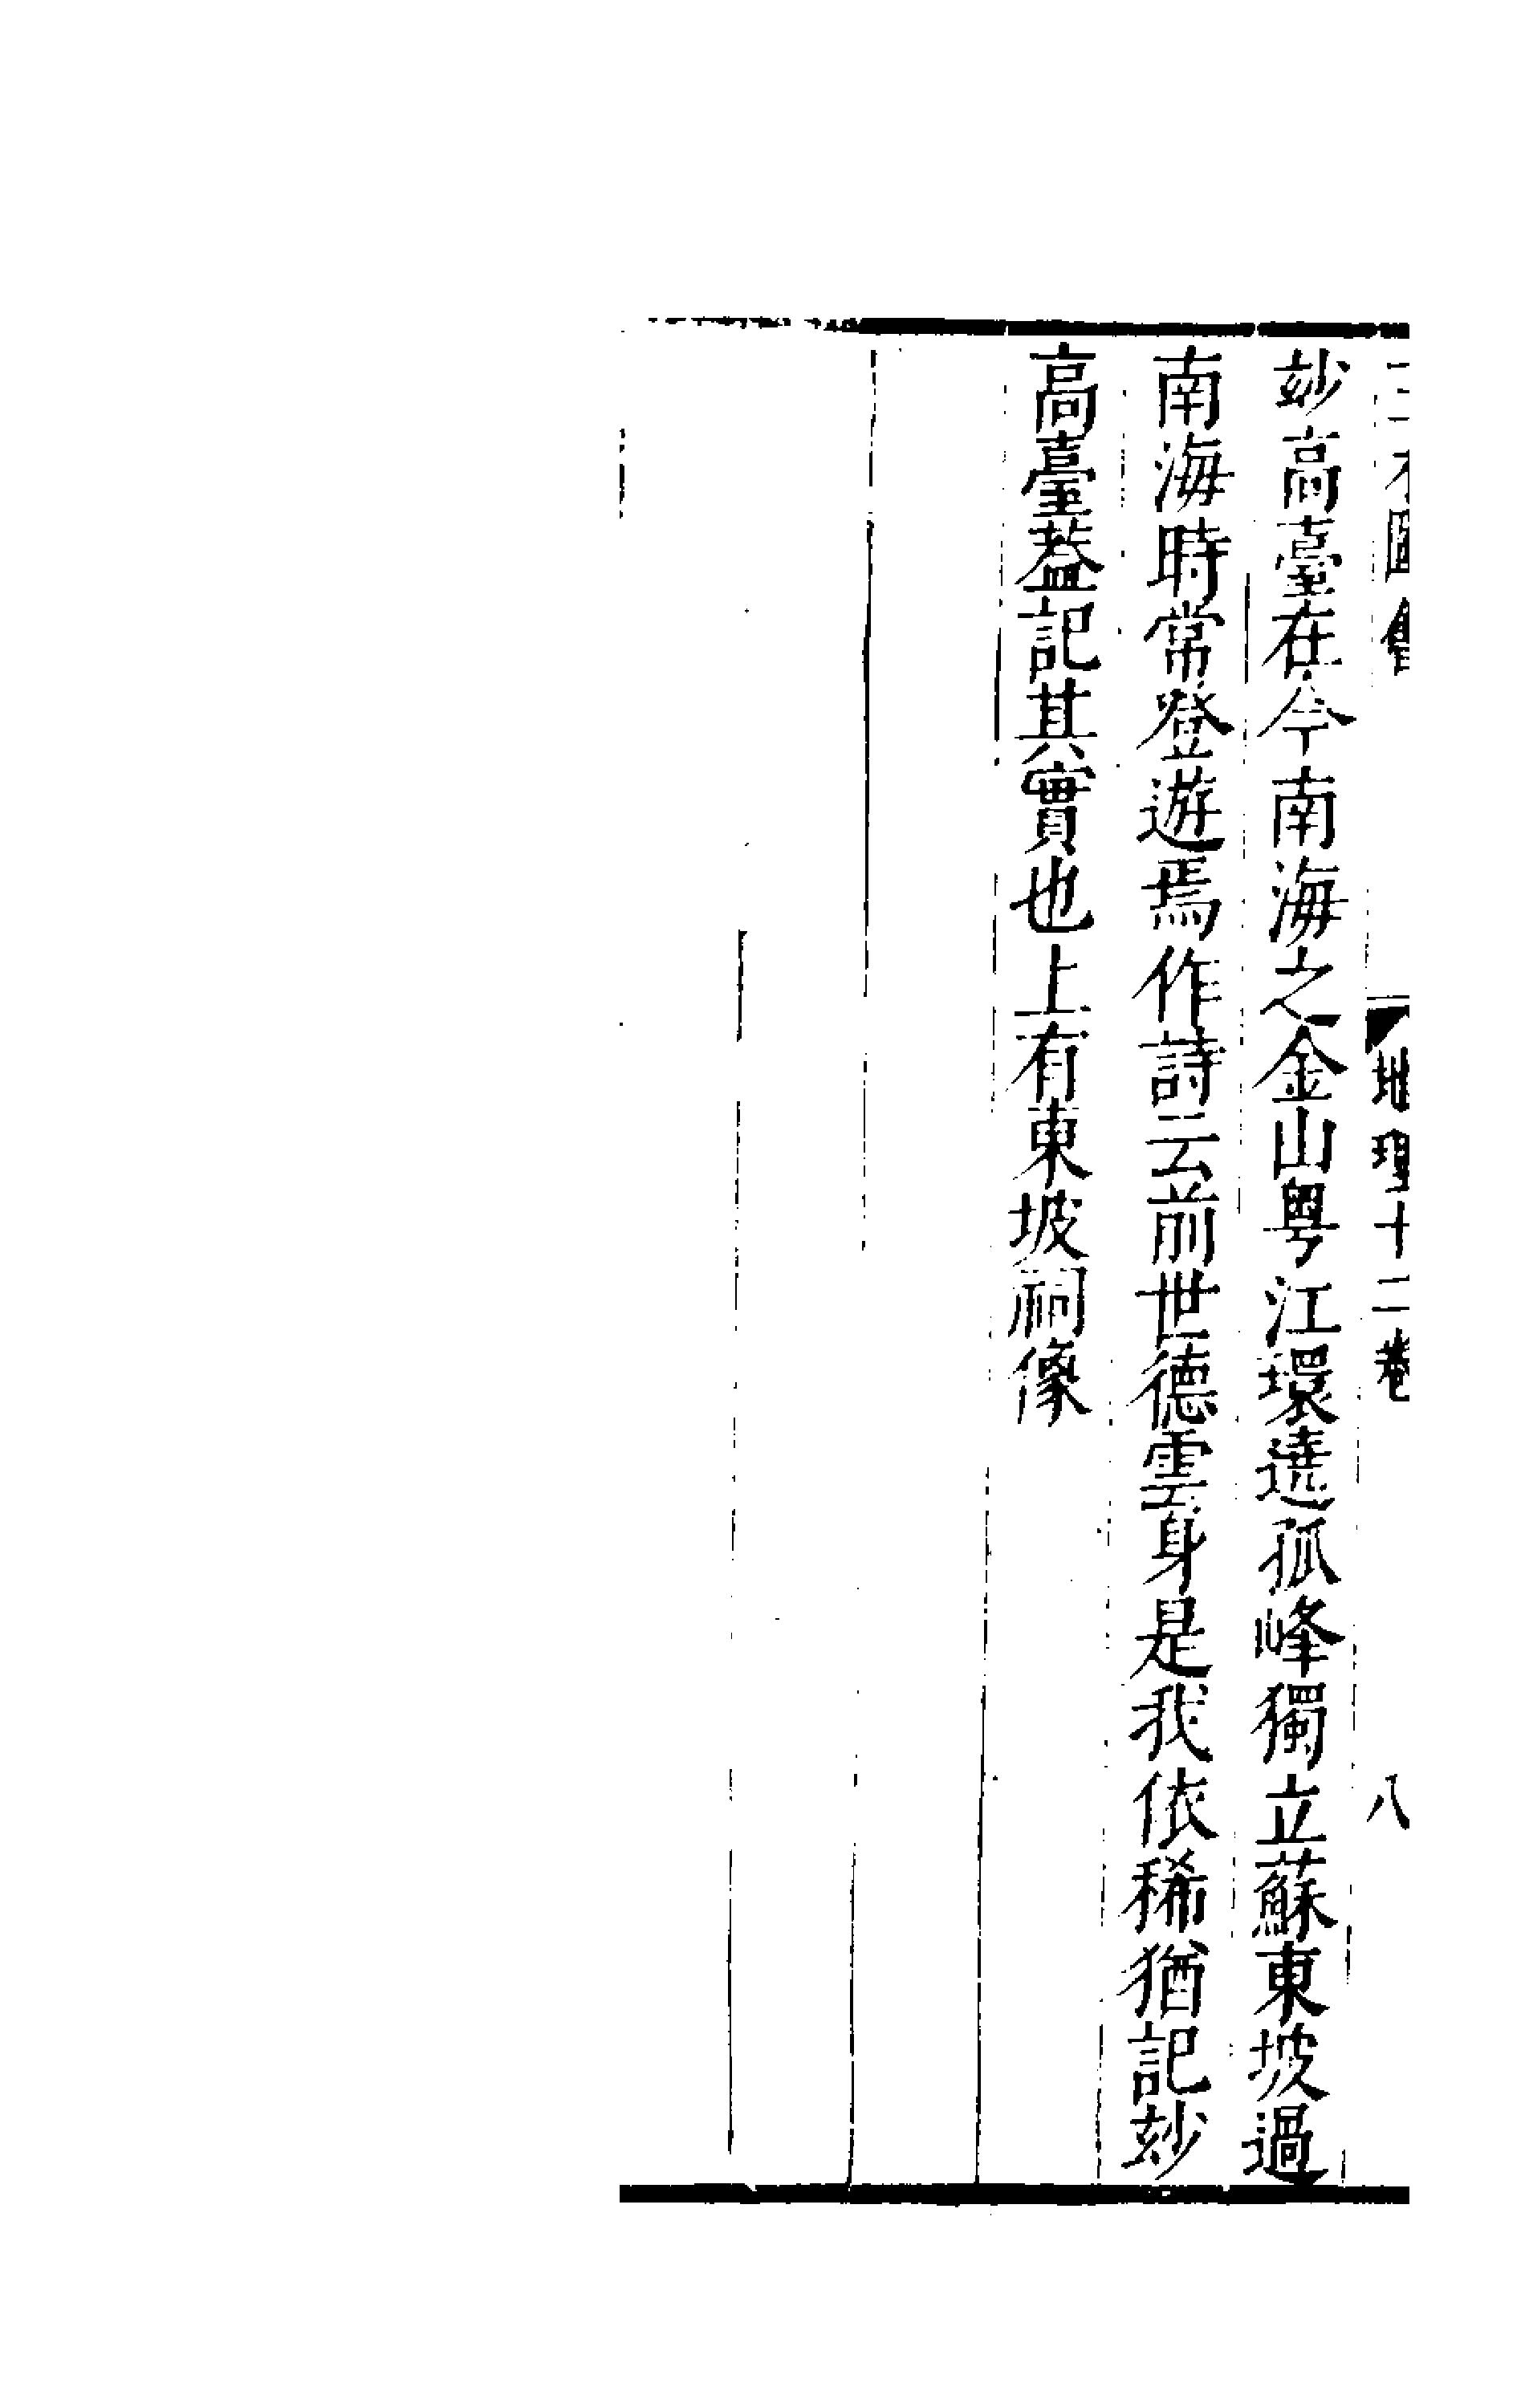 三才圖會 地理十二卷 八
玅高臺在今南海之金山粤江環遶孤峰獨立蘇東坡過
南海時常登遊焉作詩云前世德雲身是我依稀猶記玅
高臺葢記其實也上有東坡祠像